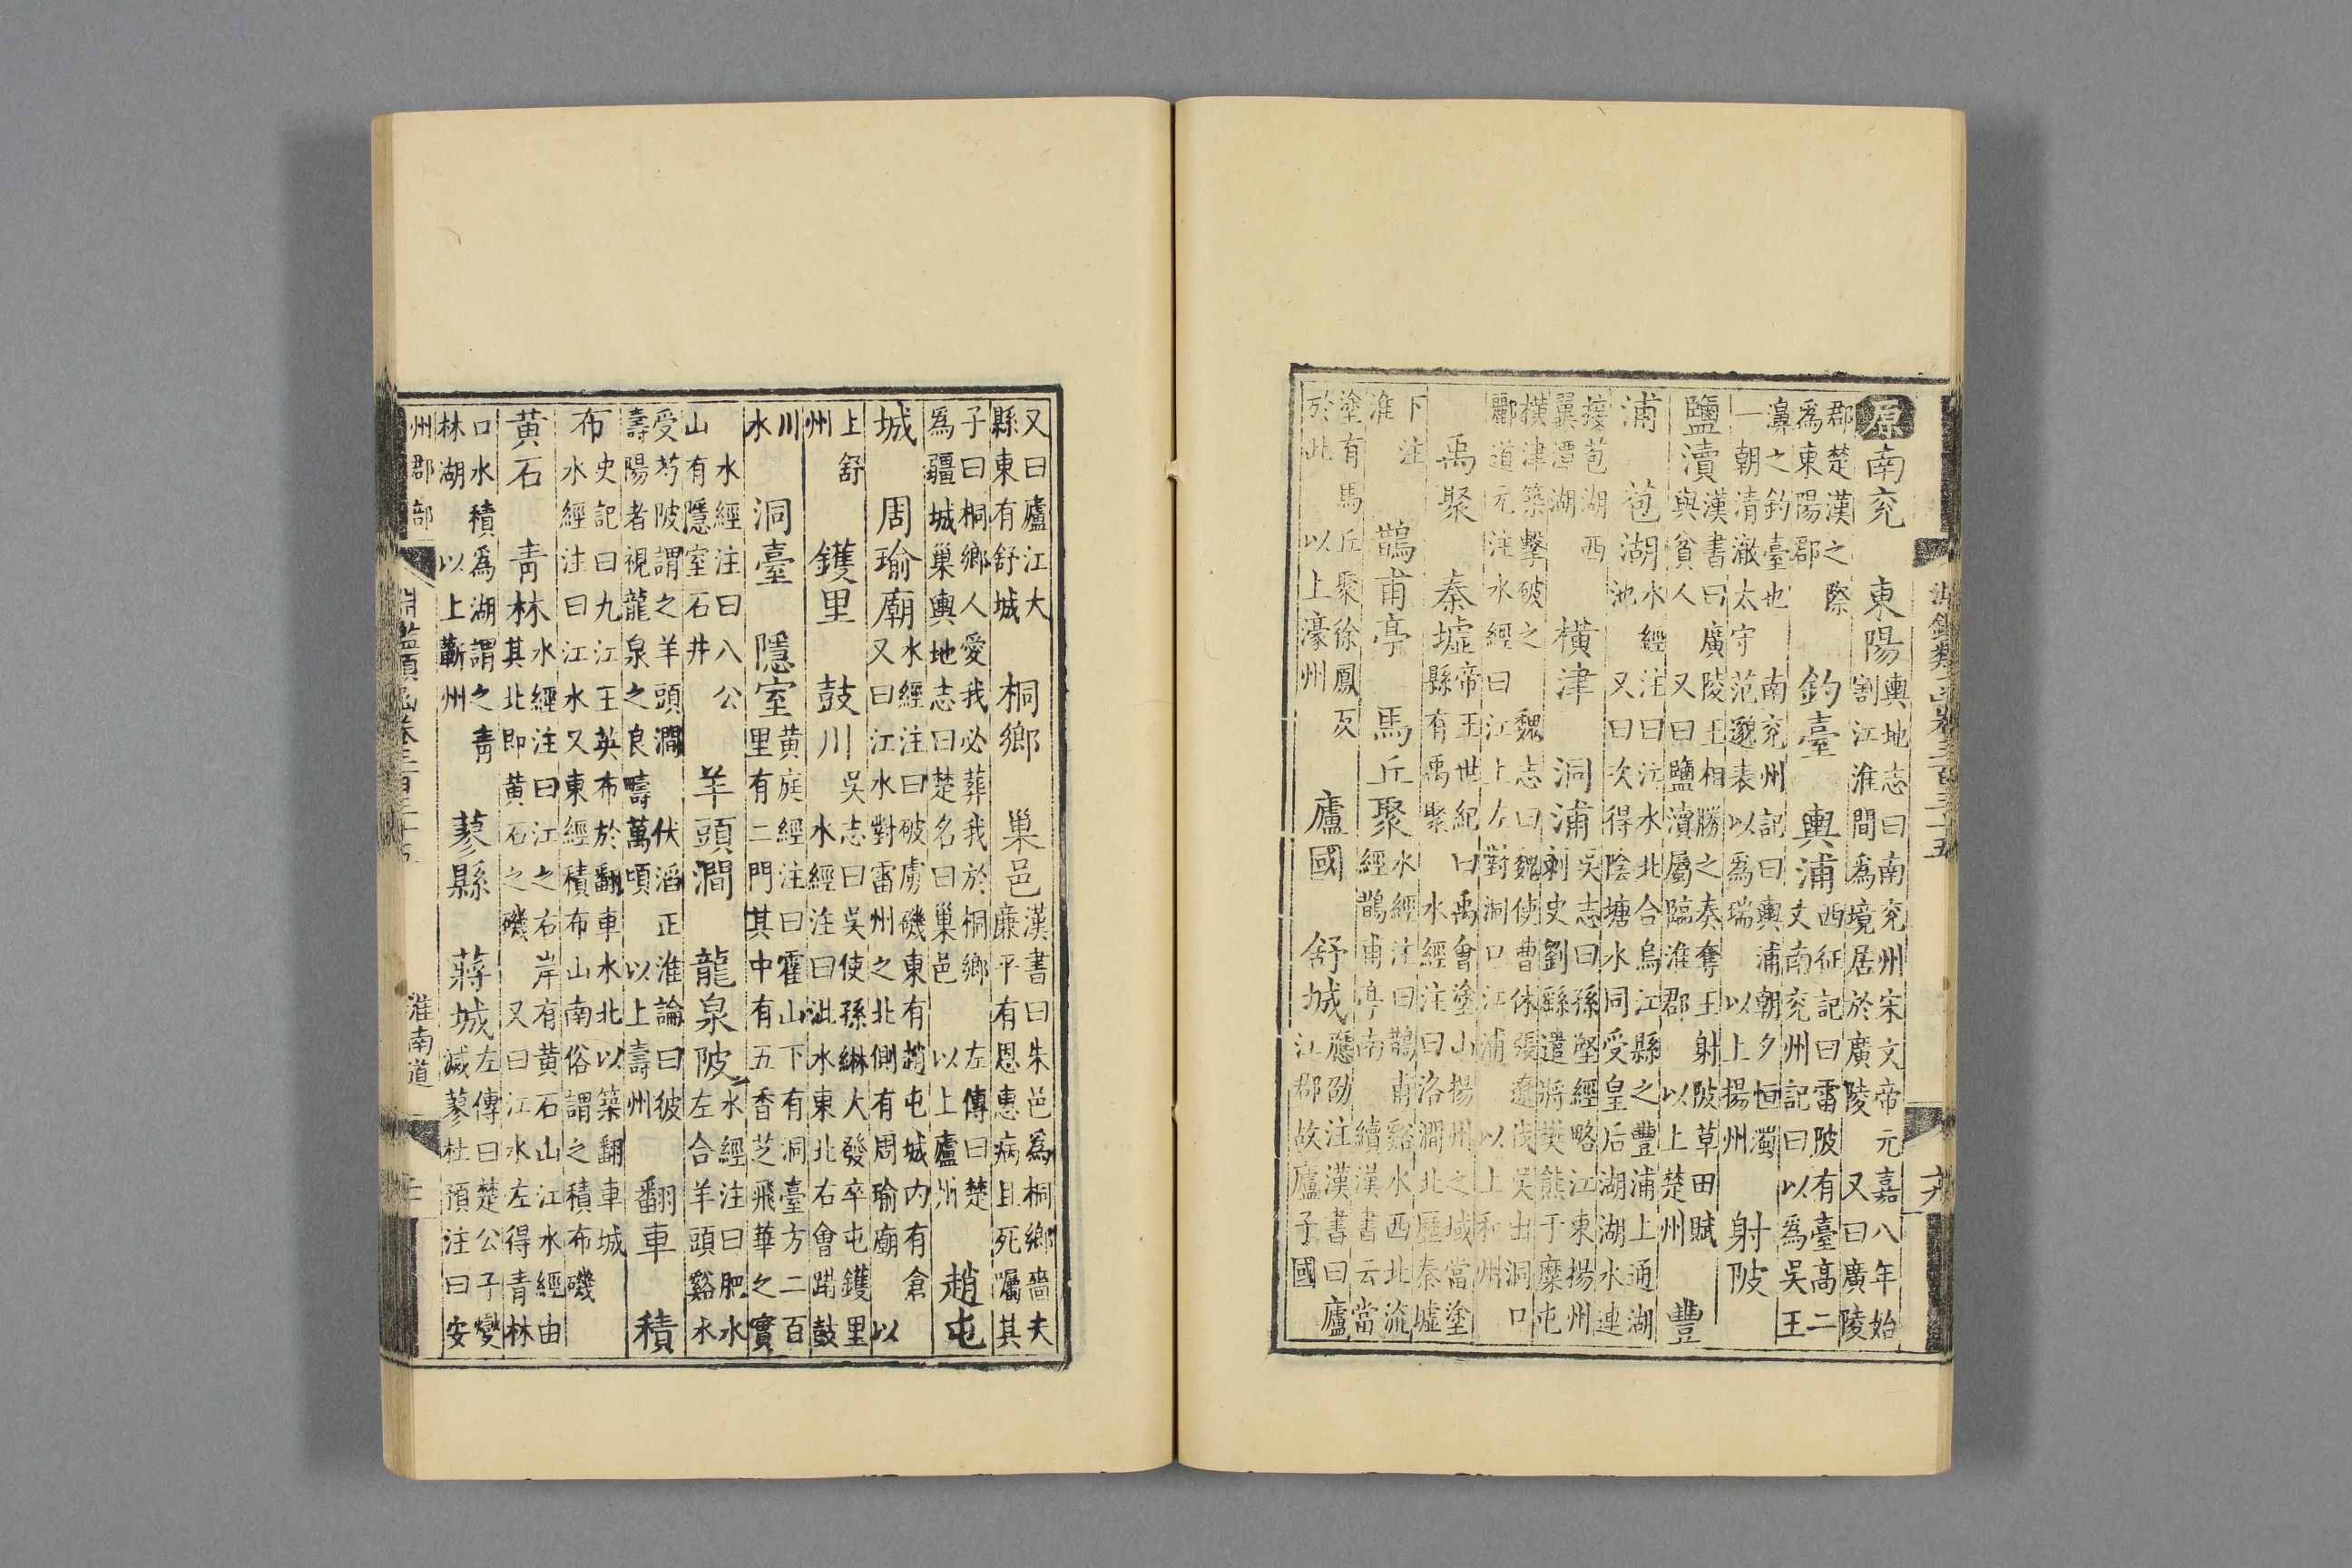 淵鑑類函卷三百三十五
六
原南兖　東陽
輿地志曰南兖州宋文帝元嘉八年始
割江淮間為境居於廣陵　又曰廣陵
郡楚漢之際
為東陽郡
釣臺　輿浦
西征記曰雷陂有臺高二
丈南兖州記曰以為吳王
濞之釣臺也　南兖州記曰輿浦朝夕恒濁
一朝清澈太守范邈表以為瑞　以上揚州
射陂
鹽瀆
漢書曰廣陵王相勝之奏奪王射陂草田賦
與貧人　又曰鹽瀆屬臨淮郡　以上楚州
豐
浦　苞湖
水經注曰江水北合烏江縣之豐浦上通湖
池　又曰次得陰塘水同受皇后湖湖水連
接苞湖西
翼潭湖
橫津　洞浦
吳志曰孫堅經略江東揚州
刺史劉繇遣將樊熊于糜屯
橫津築擊破之　魏志曰魏使曹休張遼伐吳出洞口
酈道元注水經曰江上左對洞口江浦　以上和州
禹聚　秦墟
帝王世紀曰禹會塗山揚州之域當塗
縣有禹聚　水經注曰洛澗北歷秦墟
下注
淮
鵲甫亭　馬丘聚
水經注曰鵲甫谿水西北流
經鵲甫亭南　續漢書云當
塗有馬丘聚徐鳳反
於此　以上濠州
廬國　舒城
應劭注漢書曰廬
江郡故廬子國
又曰廬江大
縣東有舒城
桐鄉　巢邑
漢書曰朱邑為桐鄉嗇夫
廉平有恩惠病且死囑其
子曰桐鄉人愛我必葬我於桐鄉　左傳曰楚
為疆城巢輿地志曰楚名曰巢邑　以上廬州
趙屯
城　周瑜廟
水經注曰破虜磯東有趙屯城内有倉
又曰江水對雷州之北側有周瑜廟　以
上舒
州
鑊里　鼓川
吳志曰吳使孫綝大發卒屯鑊里
水經注曰泚水東北右會踃鼓
川
水
洞臺　隱室
黄庭經注曰霍山下有洞臺方二百
里有二門其中有五香芝飛華之實
水經注曰八公
山有隱室石井
羊頭澗　龍泉陂
水經注曰肥水
左合羊頭谿水
受芍陂謂之羊頭澗　伏滔正淮論曰彼
壽陽者視龍泉之良疇萬頃　以上壽州
翻車　積
布
史記曰九江王英布於翻車水北以築翻車城
水經注曰江水又東經積布山南俗謂之積布磯
黄石　青林
水經注曰江之右岸有黄石山江水經由
其北即黄石之磯　又曰江水左得青林
口水積為湖謂之青
林湖　以上蘄州
蓼縣　蔣城
左傳曰楚公子燮
滅蓼杜預注曰安
州郡部
淵鑑類函卷三百三十五
淮南道